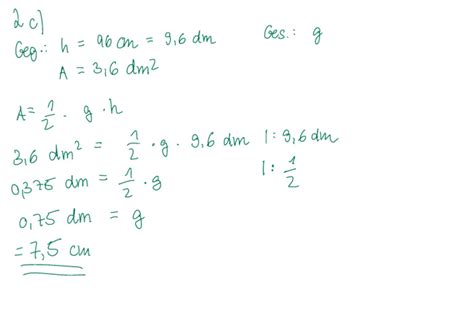 2c)
Geg.: h = 96 cm = 9,6 dm Ges.: g
A = 3,6 dm²
A = 1/2 · g · h
3,6 dm² = 1/2 · g · 9,6 dm |: 9,6 dm
0,375 dm = 1/2 · g |: 1/2
0,75 dm = g
= 7,5 cm